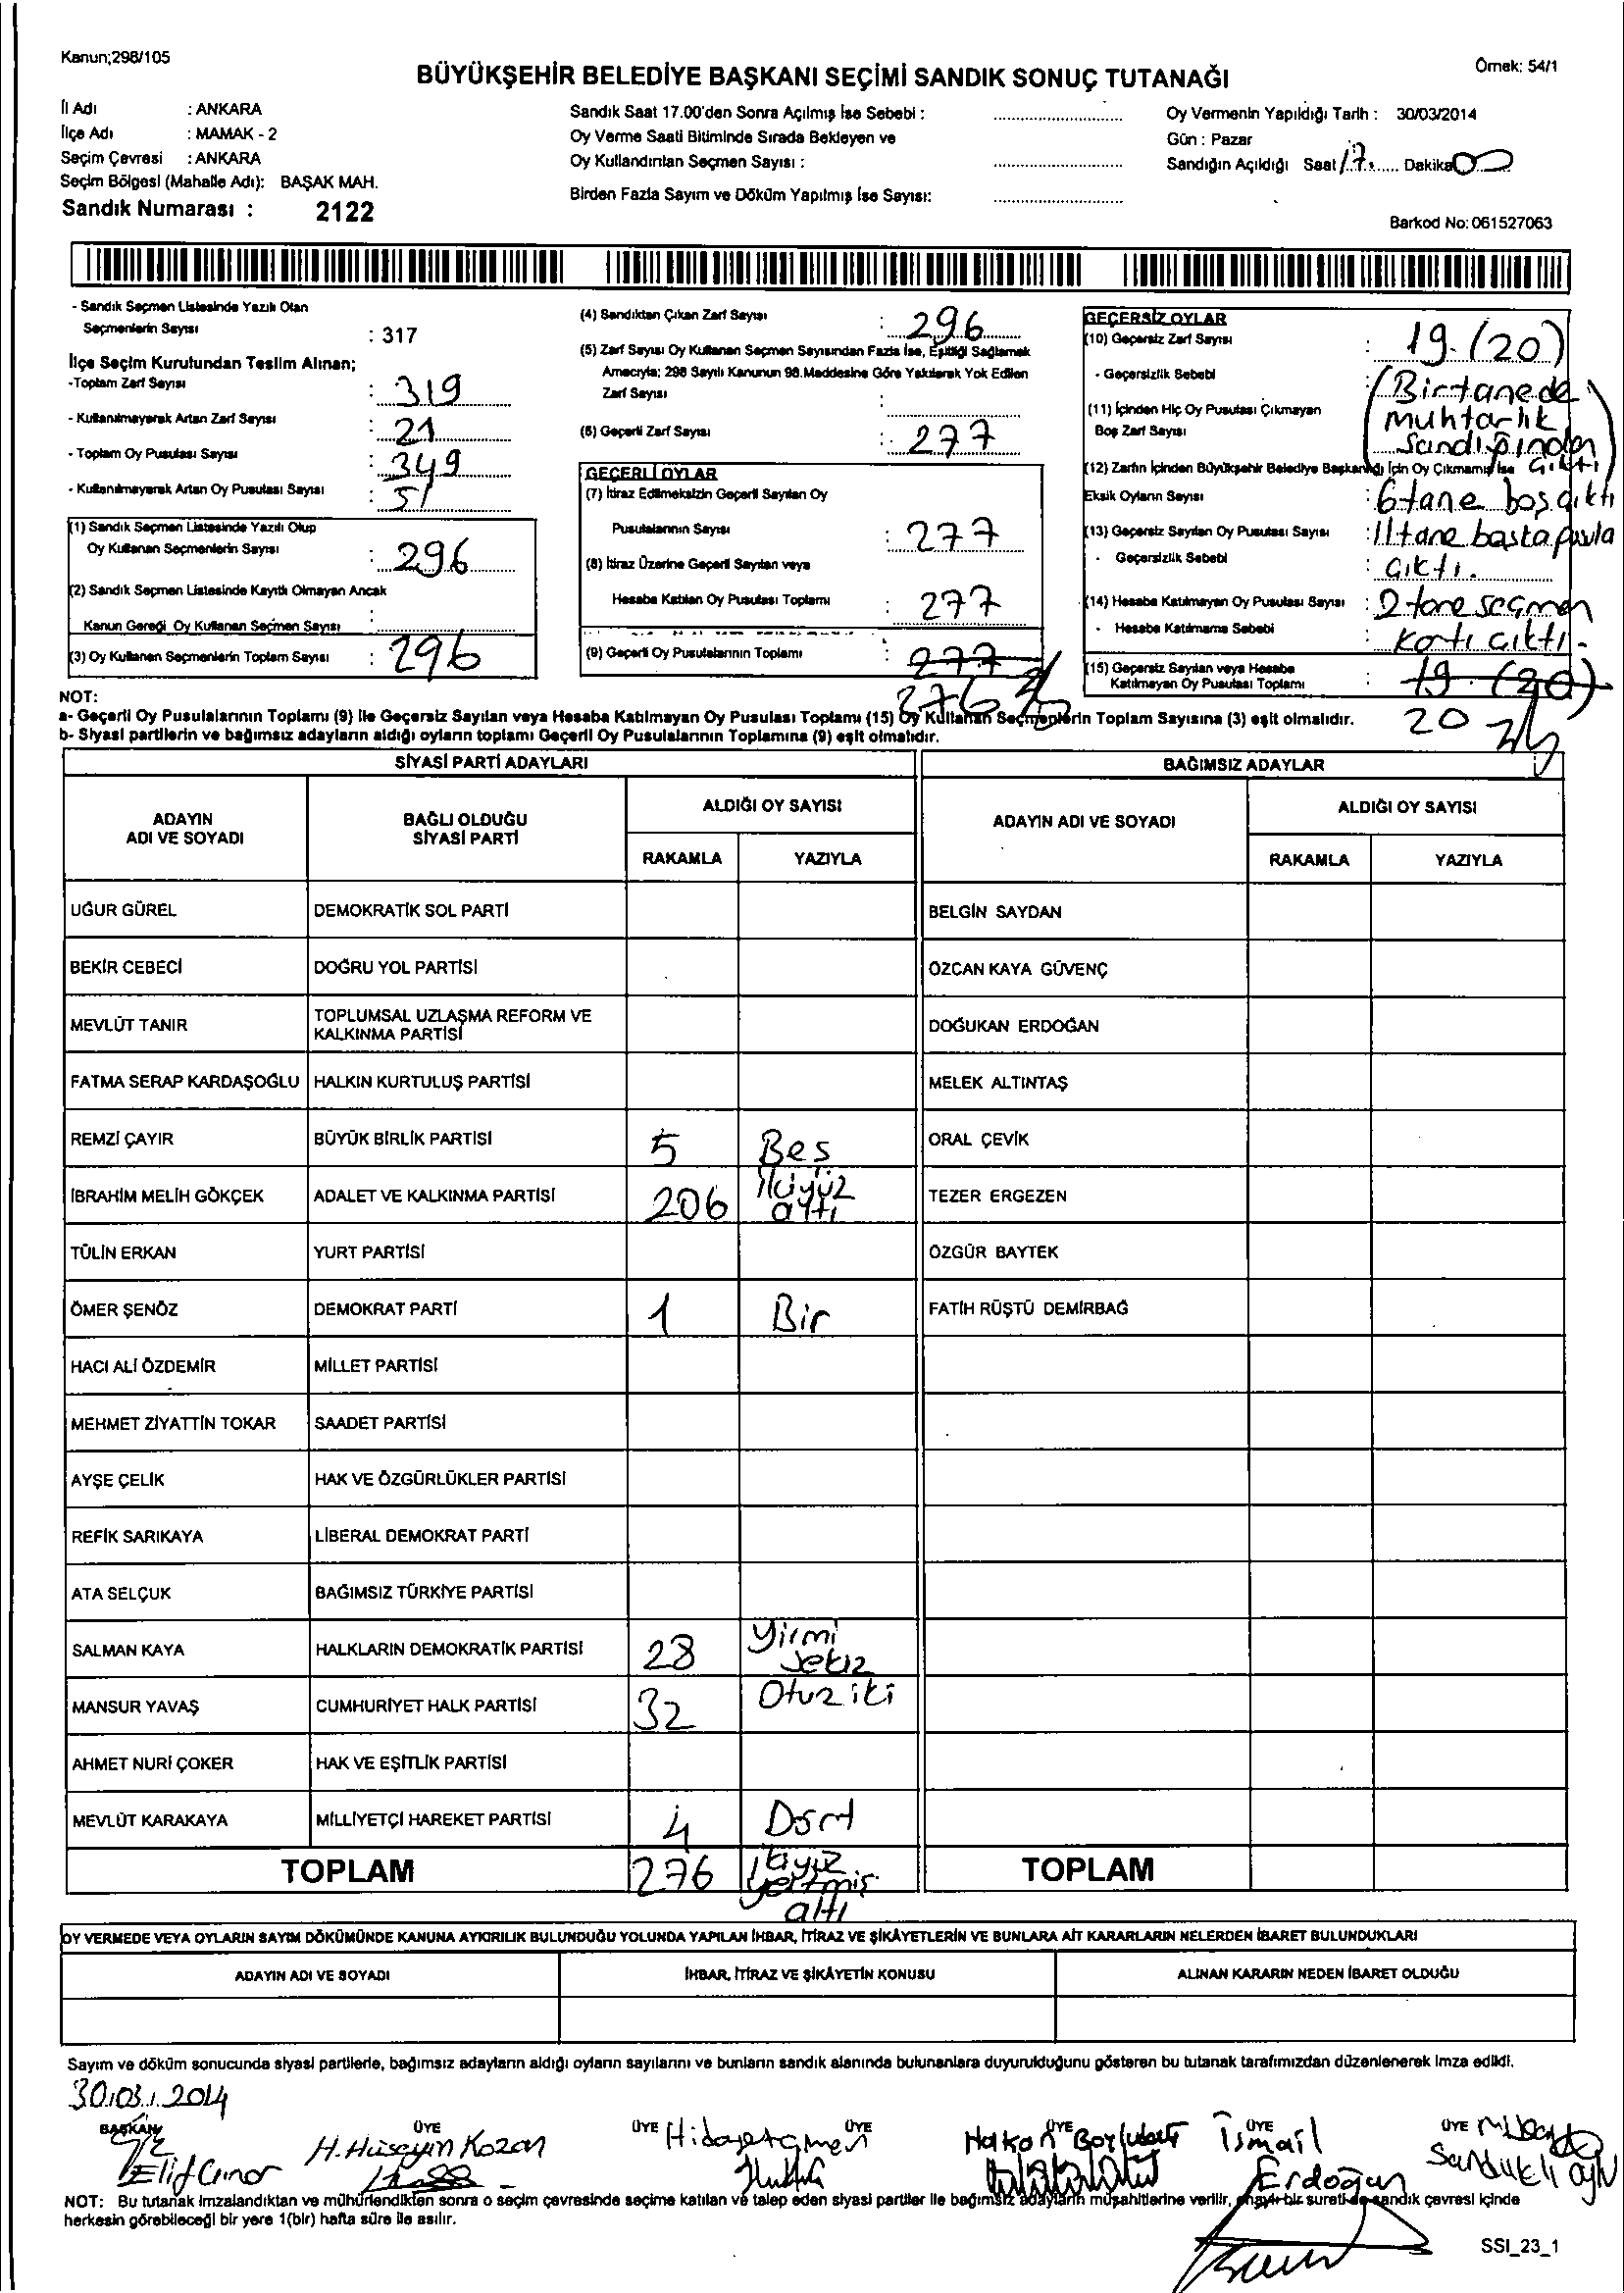 Kanun;298/105
Örnek: 54/1
BÜYÜKŞEHİR BELEDİYE BAŞKANI SEÇİMİ SANDIK SONUÇ TUTANAĞI
İl Adı : ANKARA
İlçe Adı : MAMAK - 2
Seçim Çevresi : ANKARA
Seçim Bölgesi (Mahalle Adı): BAŞAK MAH.
Sandık Numarası : 2122
Sandık Saat 17.00'den Sonra Açılmış İse Sebebi :
Oy Verme Saati Bitiminde Sırada Bekleyen ve
Oy Kullandırılan Seçmen Sayısı :
Birden Fazla Sayım ve Döküm Yapılmış İse Sayısı:
Oy Vermenin Yapıldığı Tarih : 30/03/2014
Gün : Pazar
Sandığın Açıldığı Saat 17 Dakika 00
Barkod No: 061527063
- Sandık Seçmen Listesinde Yazılı Olan
Seçmenlerin Sayısı : 317
İlçe Seçim Kurulundan Teslim Alınan;
-Toplam Zarf Sayısı : 319
- Kullanılmayarak Artan Zarf Sayısı : 21
- Toplam Oy Pusulası Sayısı : 349
- Kullanılmayarak Artan Oy Pusulası Sayısı : 51
(1) Sandık Seçmen Listesinde Yazılı Olup
Oy Kullanan Seçmenlerin Sayısı : 296
(2) Sandık Seçmen Listesinde Kayıtlı Olmayan Ancak
Kanun Gereği Oy Kullanan Seçmen Sayısı :
(3) Oy Kullanan Seçmenlerin Toplam Sayısı : 296
(4) Sandıktan Çıkan Zarf Sayısı : 296
(5) Zarf Sayısı Oy Kullanan Seçmen Sayısından Fazla İse, Eşitliği Sağlamak
Amacıyla; 298 Sayılı Kanunun 98.Maddesine Göre Yakılarak Yok Edilen
Zarf Sayısı :
(6) Geçerli Zarf Sayısı : 277
GEÇERLİ OYLAR
(7) İtiraz Edilmeksizin Geçerli Sayılan Oy
Pusulalarının Sayısı : 277
(8) İtiraz Üzerine Geçerli Sayılan veya
Hesaba Katılan Oy Pusulası Toplamı : 277
(9) Geçerli Oy Pusulalarının Toplamı : 277
276
GEÇERSİZ OYLAR
(10) Geçersiz Zarf Sayısı : 19 (20)
- Geçersizlik Sebebi : (Bir tane de
muhtarlık
sandığından
çıktı)
(11) İçinden Hiç Oy Pusulası Çıkmayan
Boş Zarf Sayısı
(12) Zarfın İçinden Büyükşehir Belediye Başkanlığı İçin Oy Çıkmamış İse
Eksik Oyların Sayısı : 6 tane boş çıktı
(13) Geçersiz Sayılan Oy Pusulası Sayısı : 11 tane başka pusula
- Geçersizlik Sebebi : çıktı.
(14) Hesaba Katılmayan Oy Pusulası Sayısı : 2 tane seçmen
- Hesaba Katılmama Sebebi : kartı çıktı.
(15) Geçersiz Sayılan veya Hesaba
Katılmayan Oy Pusulası Toplamı : 19 (20)
20
NOT:
a- Geçerli Oy Pusulalarının Toplamı (9) ile Geçersiz Sayılan veya Hesaba Katılmayan Oy Pusulası Toplamı (15) Oy Kullanan Seçmenlerin Toplam Sayısına (3) eşit olmalıdır.
b- Siyasi partilerin ve bağımsız adayların aldığı oyların toplamı Geçerli Oy Pusulalarının Toplamına (9) eşit olmalıdır.
SİYASİ PARTİ ADAYLARI
BAĞIMSIZ ADAYLAR
ADAYIN ADI VE SOYADI BAĞLI OLDUĞU SİYASİ PARTİ ALDIĞI OY SAYISI
RAKAMLA YAZIYLA
ADAYIN ADI VE SOYADI ALDIĞI OY SAYISI
RAKAMLA YAZIYLA
UĞUR GÜREL DEMOKRATİK SOL PARTİ BELGİN SAYDAN
BEKİR CEBECİ DOĞRU YOL PARTİSİ ÖZCAN KAYA GÜVENÇ
MEVLÜT TANIR TOPLUMSAL UZLAŞMA REFORM VE KALKINMA PARTİSİ DOĞUKAN ERDOĞAN
FATMA SERAP KARDAŞOĞLU HALKIN KURTULUŞ PARTİSİ MELEK ALTINTAŞ
REMZİ ÇAYIR BÜYÜK BİRLİK PARTİSİ 5 Beş ORAL ÇEVİK
İBRAHİM MELİH GÖKÇEK ADALET VE KALKINMA PARTİSİ 206 İkiyüz altı TEZER ERGEZEN
TÜLİN ERKAN YURT PARTİSİ ÖZGÜR BAYTEK
ÖMER ŞENÖZ DEMOKRAT PARTİ 1 Bir FATİH RÜŞTÜ DEMİRBAĞ
HACI ALİ ÖZDEMİR MİLLET PARTİSİ
MEHMET ZİYATTİN TOKAR SAADET PARTİSİ
AYŞE ÇELİK HAK VE ÖZGÜRLÜKLER PARTİSİ
REFİK SARIKAYA LİBERAL DEMOKRAT PARTİ
ATA SELÇUK BAĞIMSIZ TÜRKİYE PARTİSİ
SALMAN KAYA HALKLARIN DEMOKRATİK PARTİSİ 28 Yirmi sekiz
MANSUR YAVAŞ CUMHURİYET HALK PARTİSİ 32 Otuz iki
AHMET NURİ ÇOKER HAK VE EŞİTLİK PARTİSİ
MEVLÜT KARAKAYA MİLLİYETÇİ HAREKET PARTİSİ 4 Dört
TOPLAM 276 İkiyüz yetmiş altı TOPLAM
OY VERMEDE VEYA OYLARIN SAYIM DÖKÜMÜNDE KANUNA AYKIRILIK BULUNDUĞU YOLUNDA YAPILAN İHBAR, İTİRAZ VE ŞİKÂYETLERİN VE BUNLARA AİT KARARLARIN NELERDEN İBARET BULUNDUKLARI
ADAYIN ADI VE SOYADI İHBAR, İTİRAZ VE ŞİKÂYETİN KONUSU ALINAN KARARIN NEDEN İBARET OLDUĞU
Sayım ve döküm sonucunda siyasi partilerle, bağımsız adayların aldığı oyların sayılarını ve bunların sandık alanında bulunanlara duyurulduğunu gösteren bu tutanak tarafımızdan düzenlenerek imza edildi.
30.03.2014
BAŞKAN ÜYE ÜYE ÜYE ÜYE ÜYE ÜYE
Elif Çınar H. Hüseyin Kozan Hidayet Çimen Hakan İsmail Erdoğan
NOT: Bu tutanak imzalandıktan ve mühürlendikten sonra o seçim çevresinde seçime katılan ve talep eden siyasi partiler ile bağımsız adayların müşahitlerine verilir, onaylı bir sureti de sandık çevresi içinde
herkesin görebileceği bir yere 1(bir) hafta süre ile asılır.
SSI_23_1